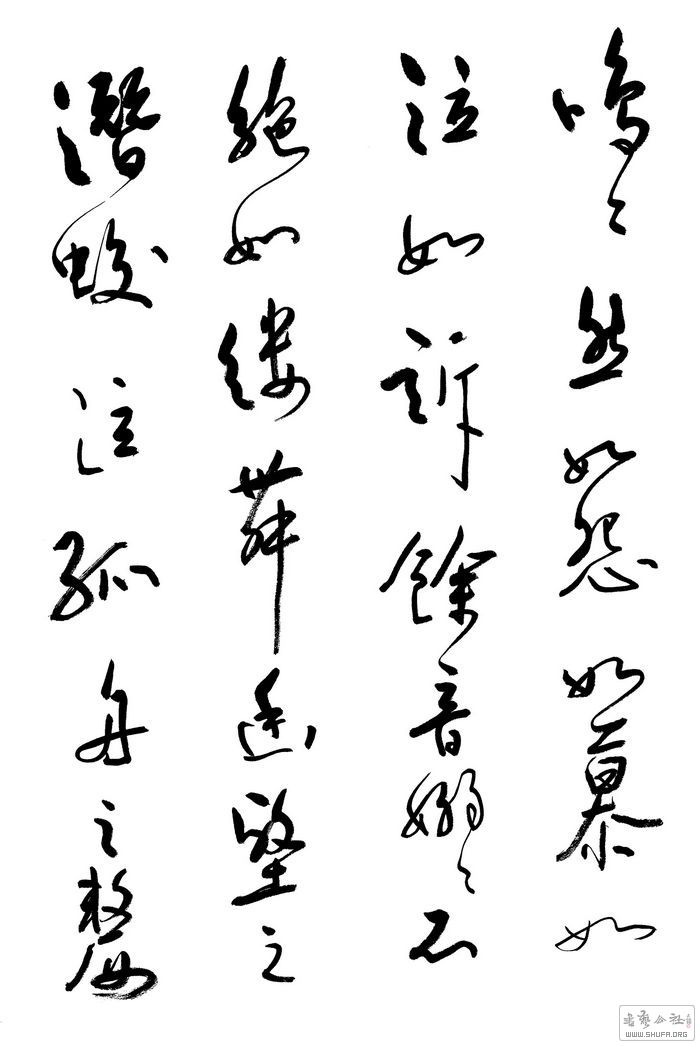 嗚々然如怨如慕如
泣如訴餘音嫋々不
絕如縷舞幽壑之
潛蛟泣孤舟之嫠
书艺公社
WWW.SHUFA.ORG